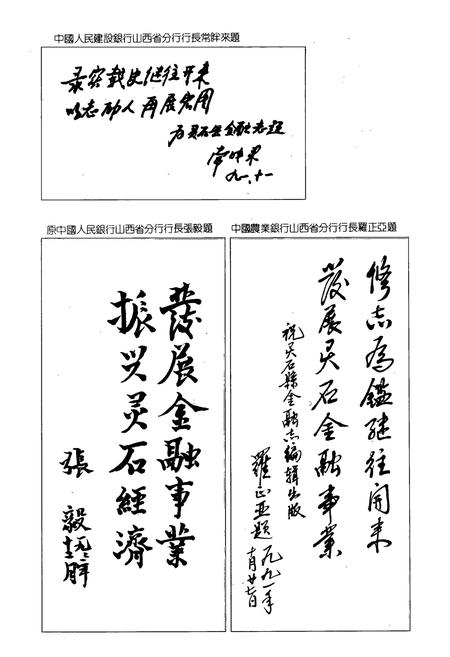 中國人民建設銀行山西省分行行長常眸來題
录实载史继往开来
以志励人再展宏图
为灵石县金融志题
九一.十一
中國農業銀行山西省分行行長羅正亞題
修志為鑑继往開来
发展灵石金融事業
祝灵石縣金融志編輯出版
羅正亚题
一九九一年
十月廿七日
原中國人民銀行山西省分行行長張毅題
發展金融事業
振兴灵石經濟
張毅